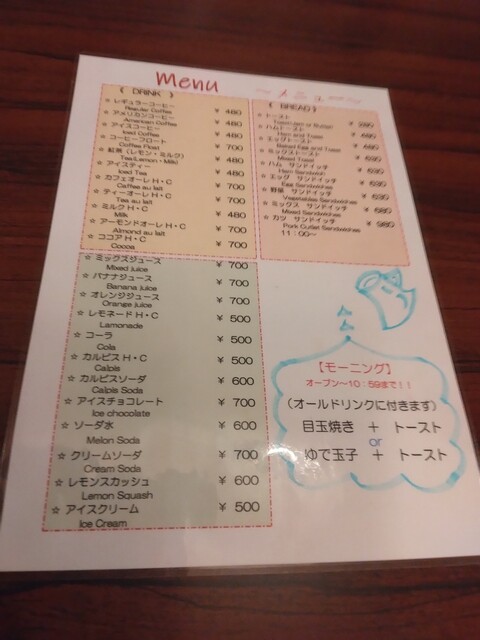 Menu ～メニュー～
《 DRINK 》
☆ レギュラーコーヒー ¥ 480
Regular Coffee
☆ アメリカンコーヒー ¥ 480
American Coffee
☆ アイスコーヒー ¥ 480
Iced Coffee
☆ コーヒーフロート ¥ 700
Coffee Float
☆ 紅茶（レモン・ミルク） ¥ 480
Tea(Lemon・Milk)
☆ アイスティー ¥ 480
Iced Tea
☆ カフェオーレ H・C ¥ 700
Caffee au lait
☆ ティーオーレ H・C ¥ 700
Tea au lait
☆ ミルク H・C ¥ 480
Milk
☆ アーモンドオーレ H・C ¥ 700
Almond au lait
☆ ココア H・C ¥ 700
Cocoa
☆ ミックスジュース ¥ 700
Mixed juice
☆ バナナジュース ¥ 700
Banana juice
☆ オレンジジュース ¥ 700
Orange juice
☆ レモネード H・C ¥ 500
Lamonade
☆ コーラ ¥ 500
Cola
☆ カルピス H・C ¥ 500
Calpis
☆ カルピスソーダ ¥ 600
Calpis Soda
☆ アイスチョコレート ¥ 700
Ice chocolate
☆ ソーダ水 ¥ 600
Melon Soda
☆ クリームソーダ ¥ 700
Cream Soda
☆ レモンスカッシュ ¥ 600
Lemon Squash
☆ アイスクリーム ¥ 500
Ice Cream
《 BREAD 》
☆ トースト ¥
☆ ハムトースト ¥ 480
Ham and Toast
☆ エッグトースト ¥ 480
Baked Egg and Toast
☆ ミックストースト ¥ 630
Mixed Toast
☆ ハム サンドイッチ ¥ 630
Ham Sandwich
☆ エッグ サンドイッチ ¥ 630
Egg Sandwiches
☆ 野菜 サンドイッチ ¥ 630
Vegetables Sandwiches
☆ ミックス サンドイッチ ¥ 680
Mixed Sandwiches
☆ カツ サンドイッチ ¥ 980
Pork Cutlet Sandwiches
11：00～
【モーニング】
オープン～10：59まで！！
（オールドリンクに付きます）
目玉焼き ＋ トースト
or
ゆで玉子 ＋ トースト